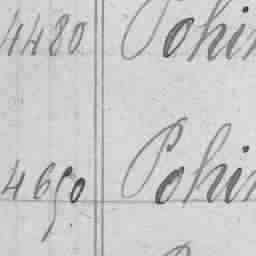 4480 Pohin
4690 Pohin